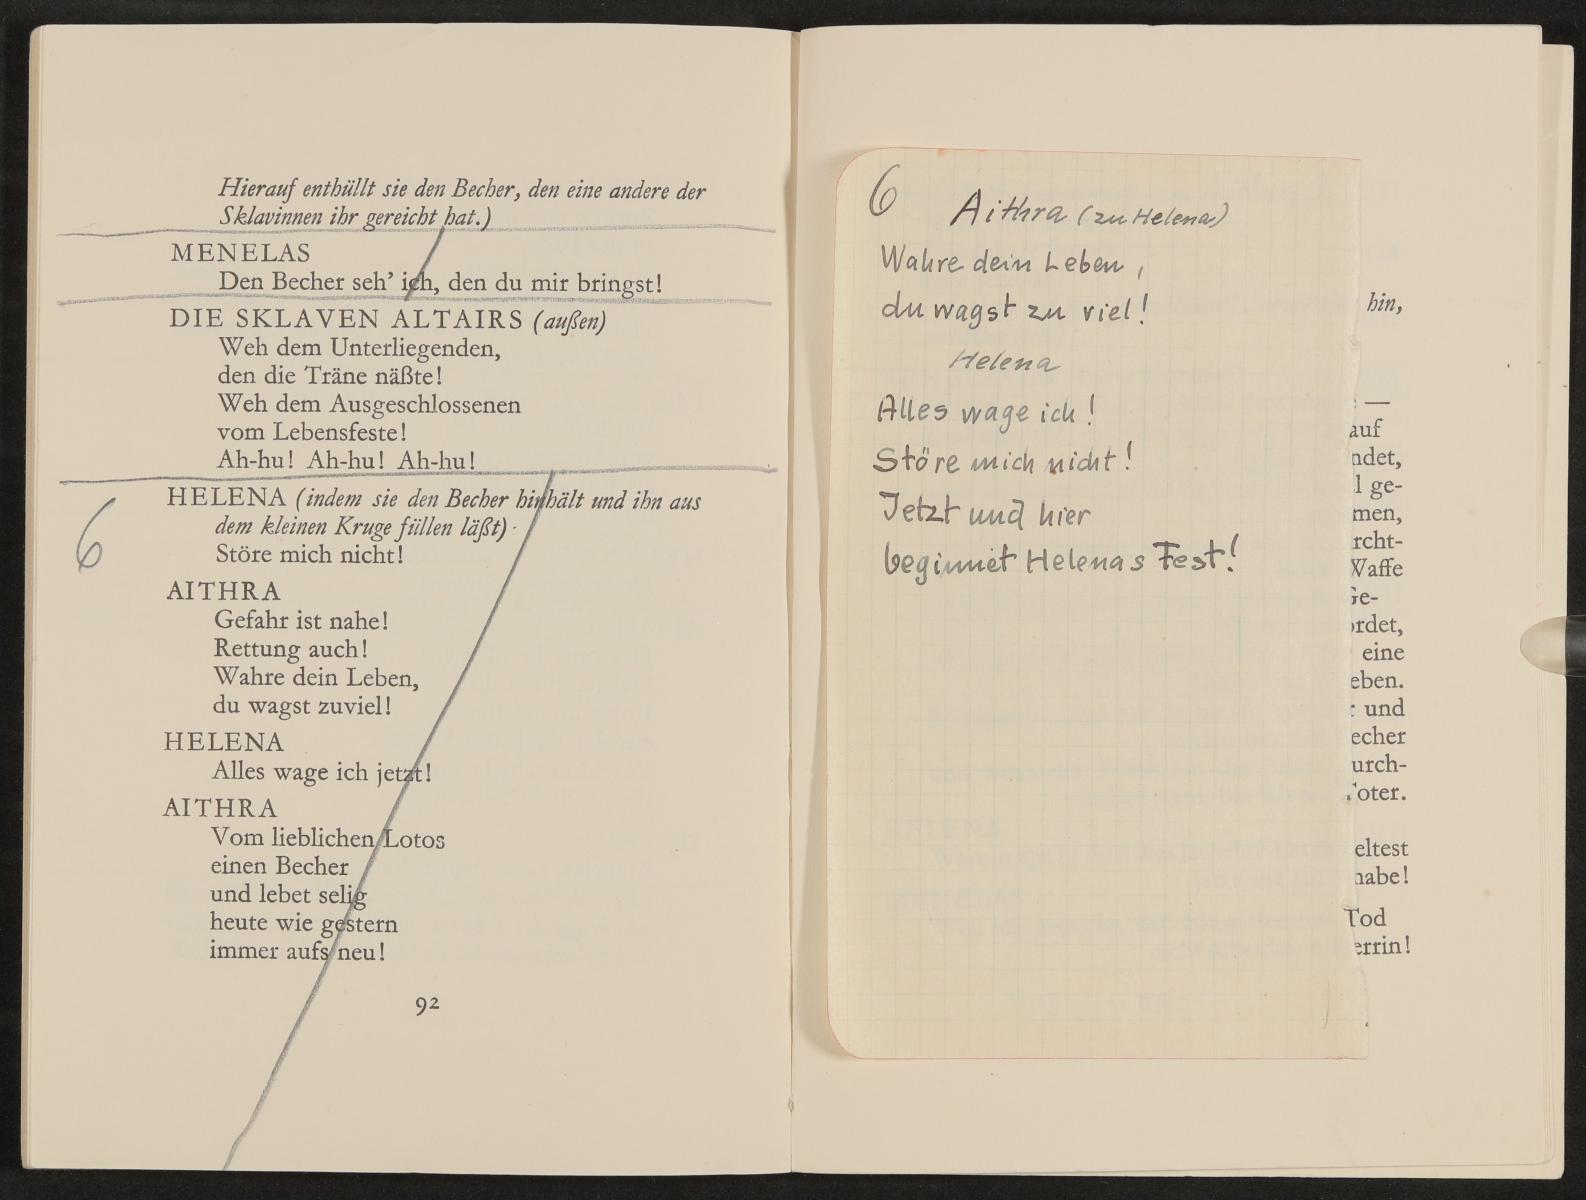 Hierauf enthüllt sie den Becher, den eine andere der
Sklavinnen ihr gereicht hat.)
MENELAS
Den Becher seh’ ich, den du mir bringst!
DIE SKLAVEN ALTAIRS (außen)
Weh dem Unterliegenden,
den die Träne näßte!
Weh dem Ausgeschlossenen
vom Lebensfeste!
Ah-hu! Ah-hu! Ah-hu!
HELENA (indem sie den Becher hinhält und ihn aus
dem kleinen Kruge füllen läßt)
6
Störe mich nicht!
AITHRA
Gefahr ist nahe!
Rettung auch!
Wahre dein Leben,
du wagst zuviel!
HELENA
Alles wage ich jetzt!
AITHRA
Vom lieblichen Lotos
einen Becher
und lebet selig
heute wie gestern
immer aufs neu!
92
6
Aithra (zu Helena)
Wahre dein Leben,
du wagst zu viel!
Helena
Alles wage ich!
Störe mich nicht!
Jetzt und hier
beginnet Helenas Fest!
hin,
—
auf
ndet,
l ge-
men,
rcht-
Waffe
Ge-
ordet,
eine
eben.
r und
echer
urch-
Toter.
eltest
habe!
Tod
errin!